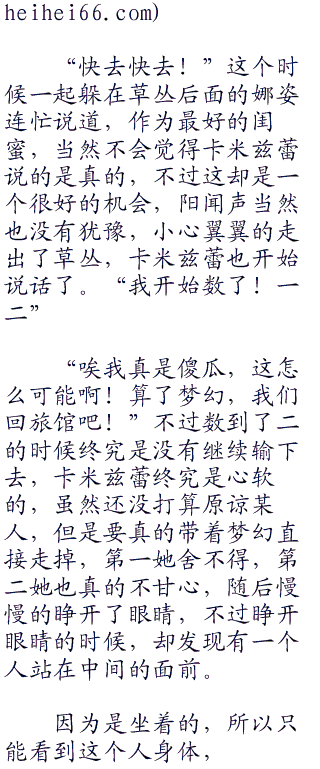 heihei66.com)
“快去快去！”这个时
候一起躲在草丛后面的娜姿
连忙说道，作为最好的闺
蜜，当然不会觉得卡米兹蕾
说的是真的，不过这却是一
个很好的机会，阳闻声当然
也没有犹豫，小心翼翼的走
出了草丛，卡米兹蕾也开始
说话了。“我开始数了！一
二”
“唉我真是傻瓜，这怎
么可能啊！算了梦幻，我们
回旅馆吧！”不过数到了二
的时候终究是没有继续输下
去，卡米兹蕾终究是心软
的，虽然还没打算原谅某
人，但是要真的带着梦幻直
接走掉，第一她舍不得，第
二她也真的不甘心，随后慢
慢的睁开了眼睛，不过睁开
眼睛的时候，却发现有一个
人站在中间的面前。
因为是坐着的，所以只
能看到这个人身体，